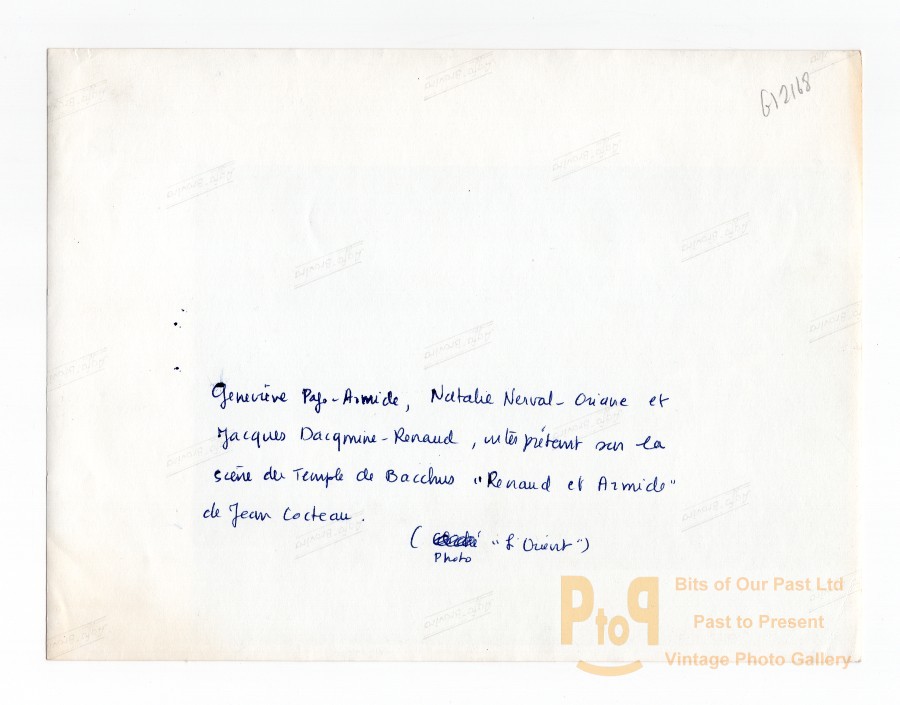 G12168
Geneviève Page-Armide, Natalie Nerval-Oriane et
Jacques Dacqmine-Renaud, interprétant sur la
scène du Temple de Bacchus "Renaud et Armide"
de Jean Cocteau.
( "L'Orient")
Photo
PtoP
Bits of Our Past Ltd
Past to Present
Vintage Photo Gallery